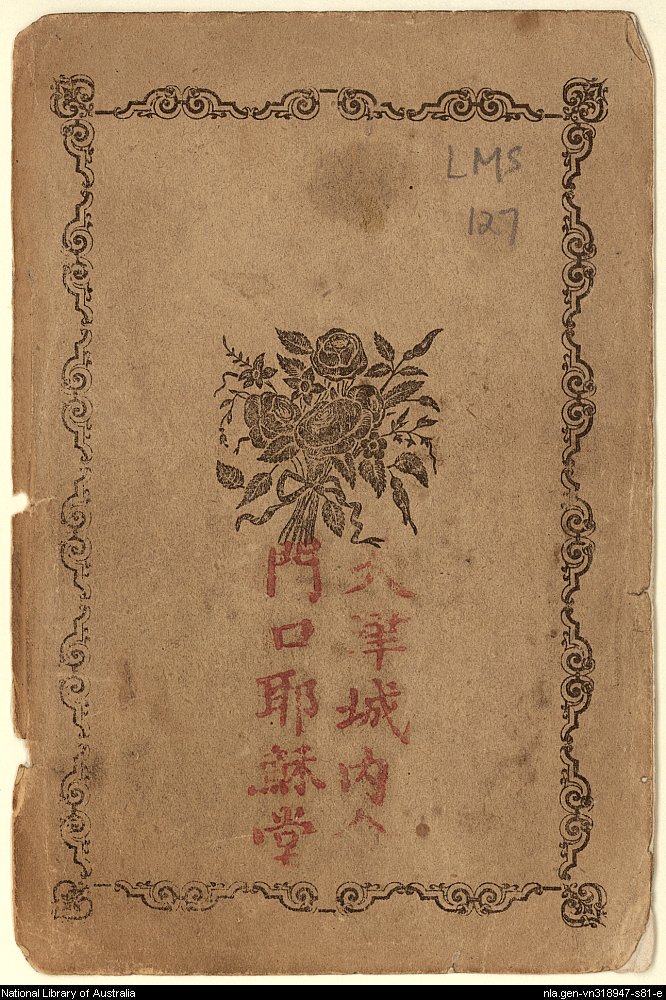 LMS
127
華城內
門口耶穌堂
National Library of Australia
nla.gen-vn318947-s81-e